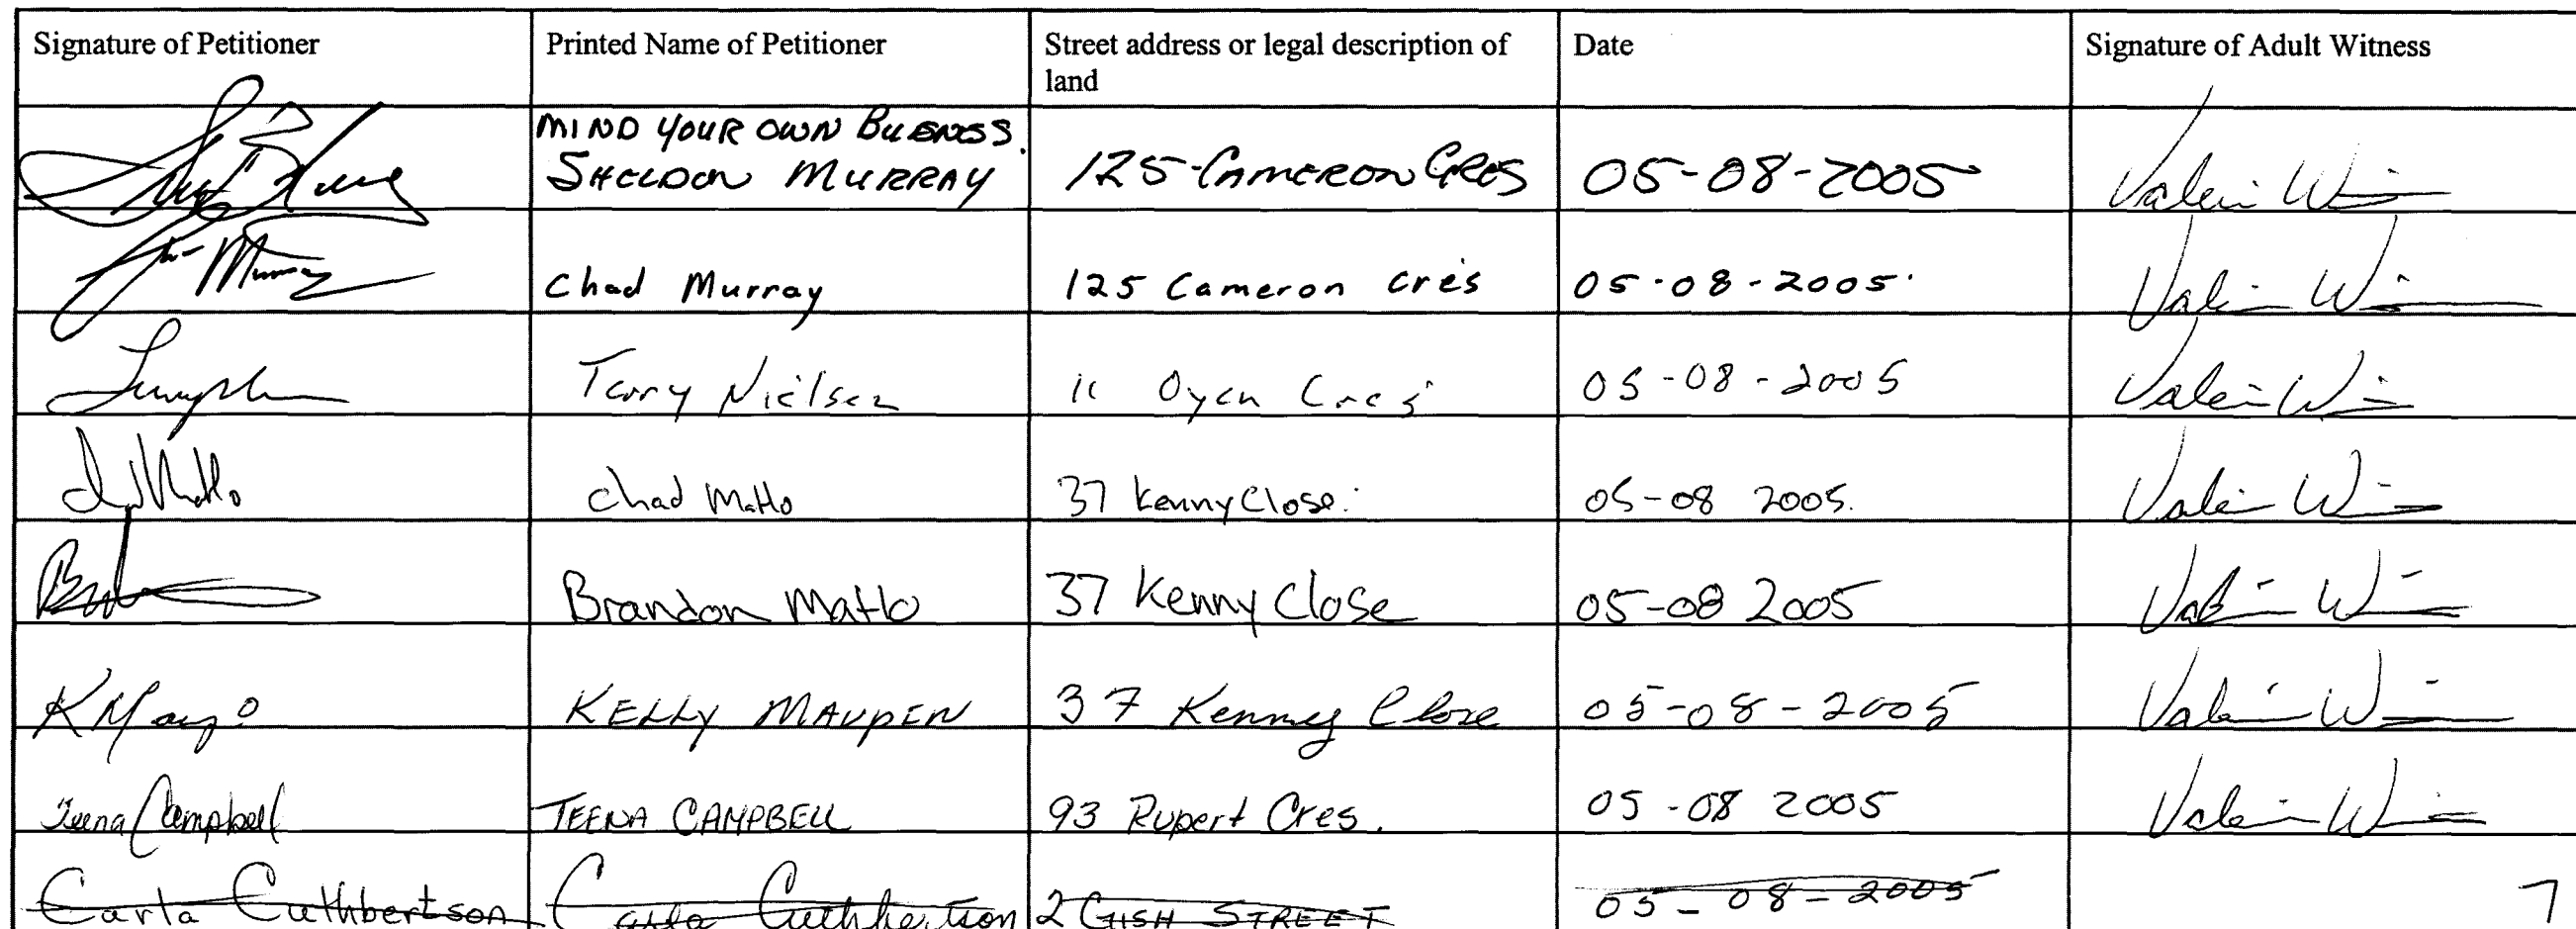 Signature of Petitioner Printed Name of Petitioner Street address or legal description of Date Signature of Adult Witness
land
MIND YOUR OWN BUSNESS.
SHELDON MURRAY 125 CAMERON CRES 05-08-2005
Murray Chad Murray 125 Cameron cres 05-08-2005
Terry Nielsen 11 Oyen Cres 05-08-2005
Chad Matlo 37 Kenny Close 05-08 2005.
Brandon Matlo 37 Kenny Close 05-08 2005
KELLY MAUPEN 37 Kenney Close 05-08-2005
Teena Campbell TEENA CAMPBELL 93 Rupert Cres. 05-08 2005
Carla Cuthbertson Carla Cuthbertson 2 GISH STREET 05-08-2005 7